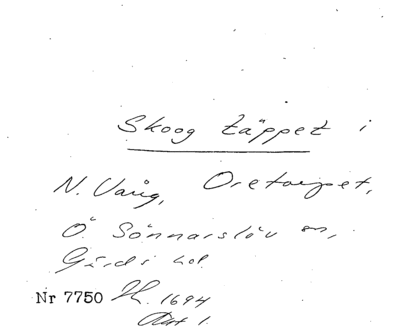 Skoog täppet i
N. Vång, Oretorpet,
Ö Sönnarslöv sn,
Gärds hd.
Nr 7750 Lh. 1694
Akt 1.